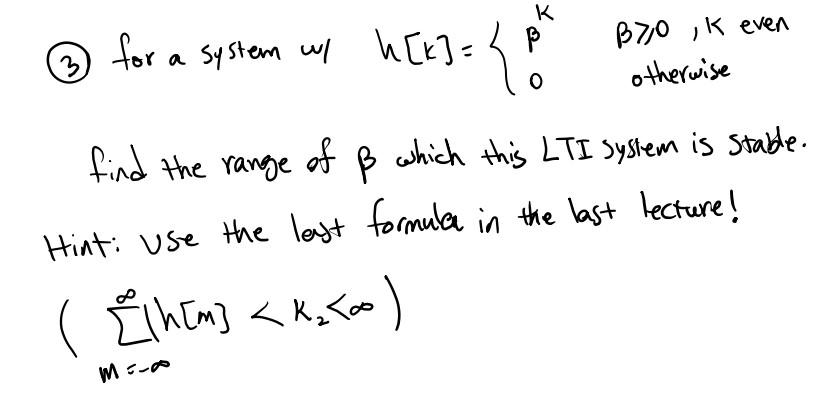 ③ for a system w/ h[k] = { β^k β⩾0 , k even
0 otherwise
find the range of β which this LTI system is stable.
Hint: Use the last formula in the last lecture!
( ∞∑m=-∞ |h[m] < K₂ < ∞ )